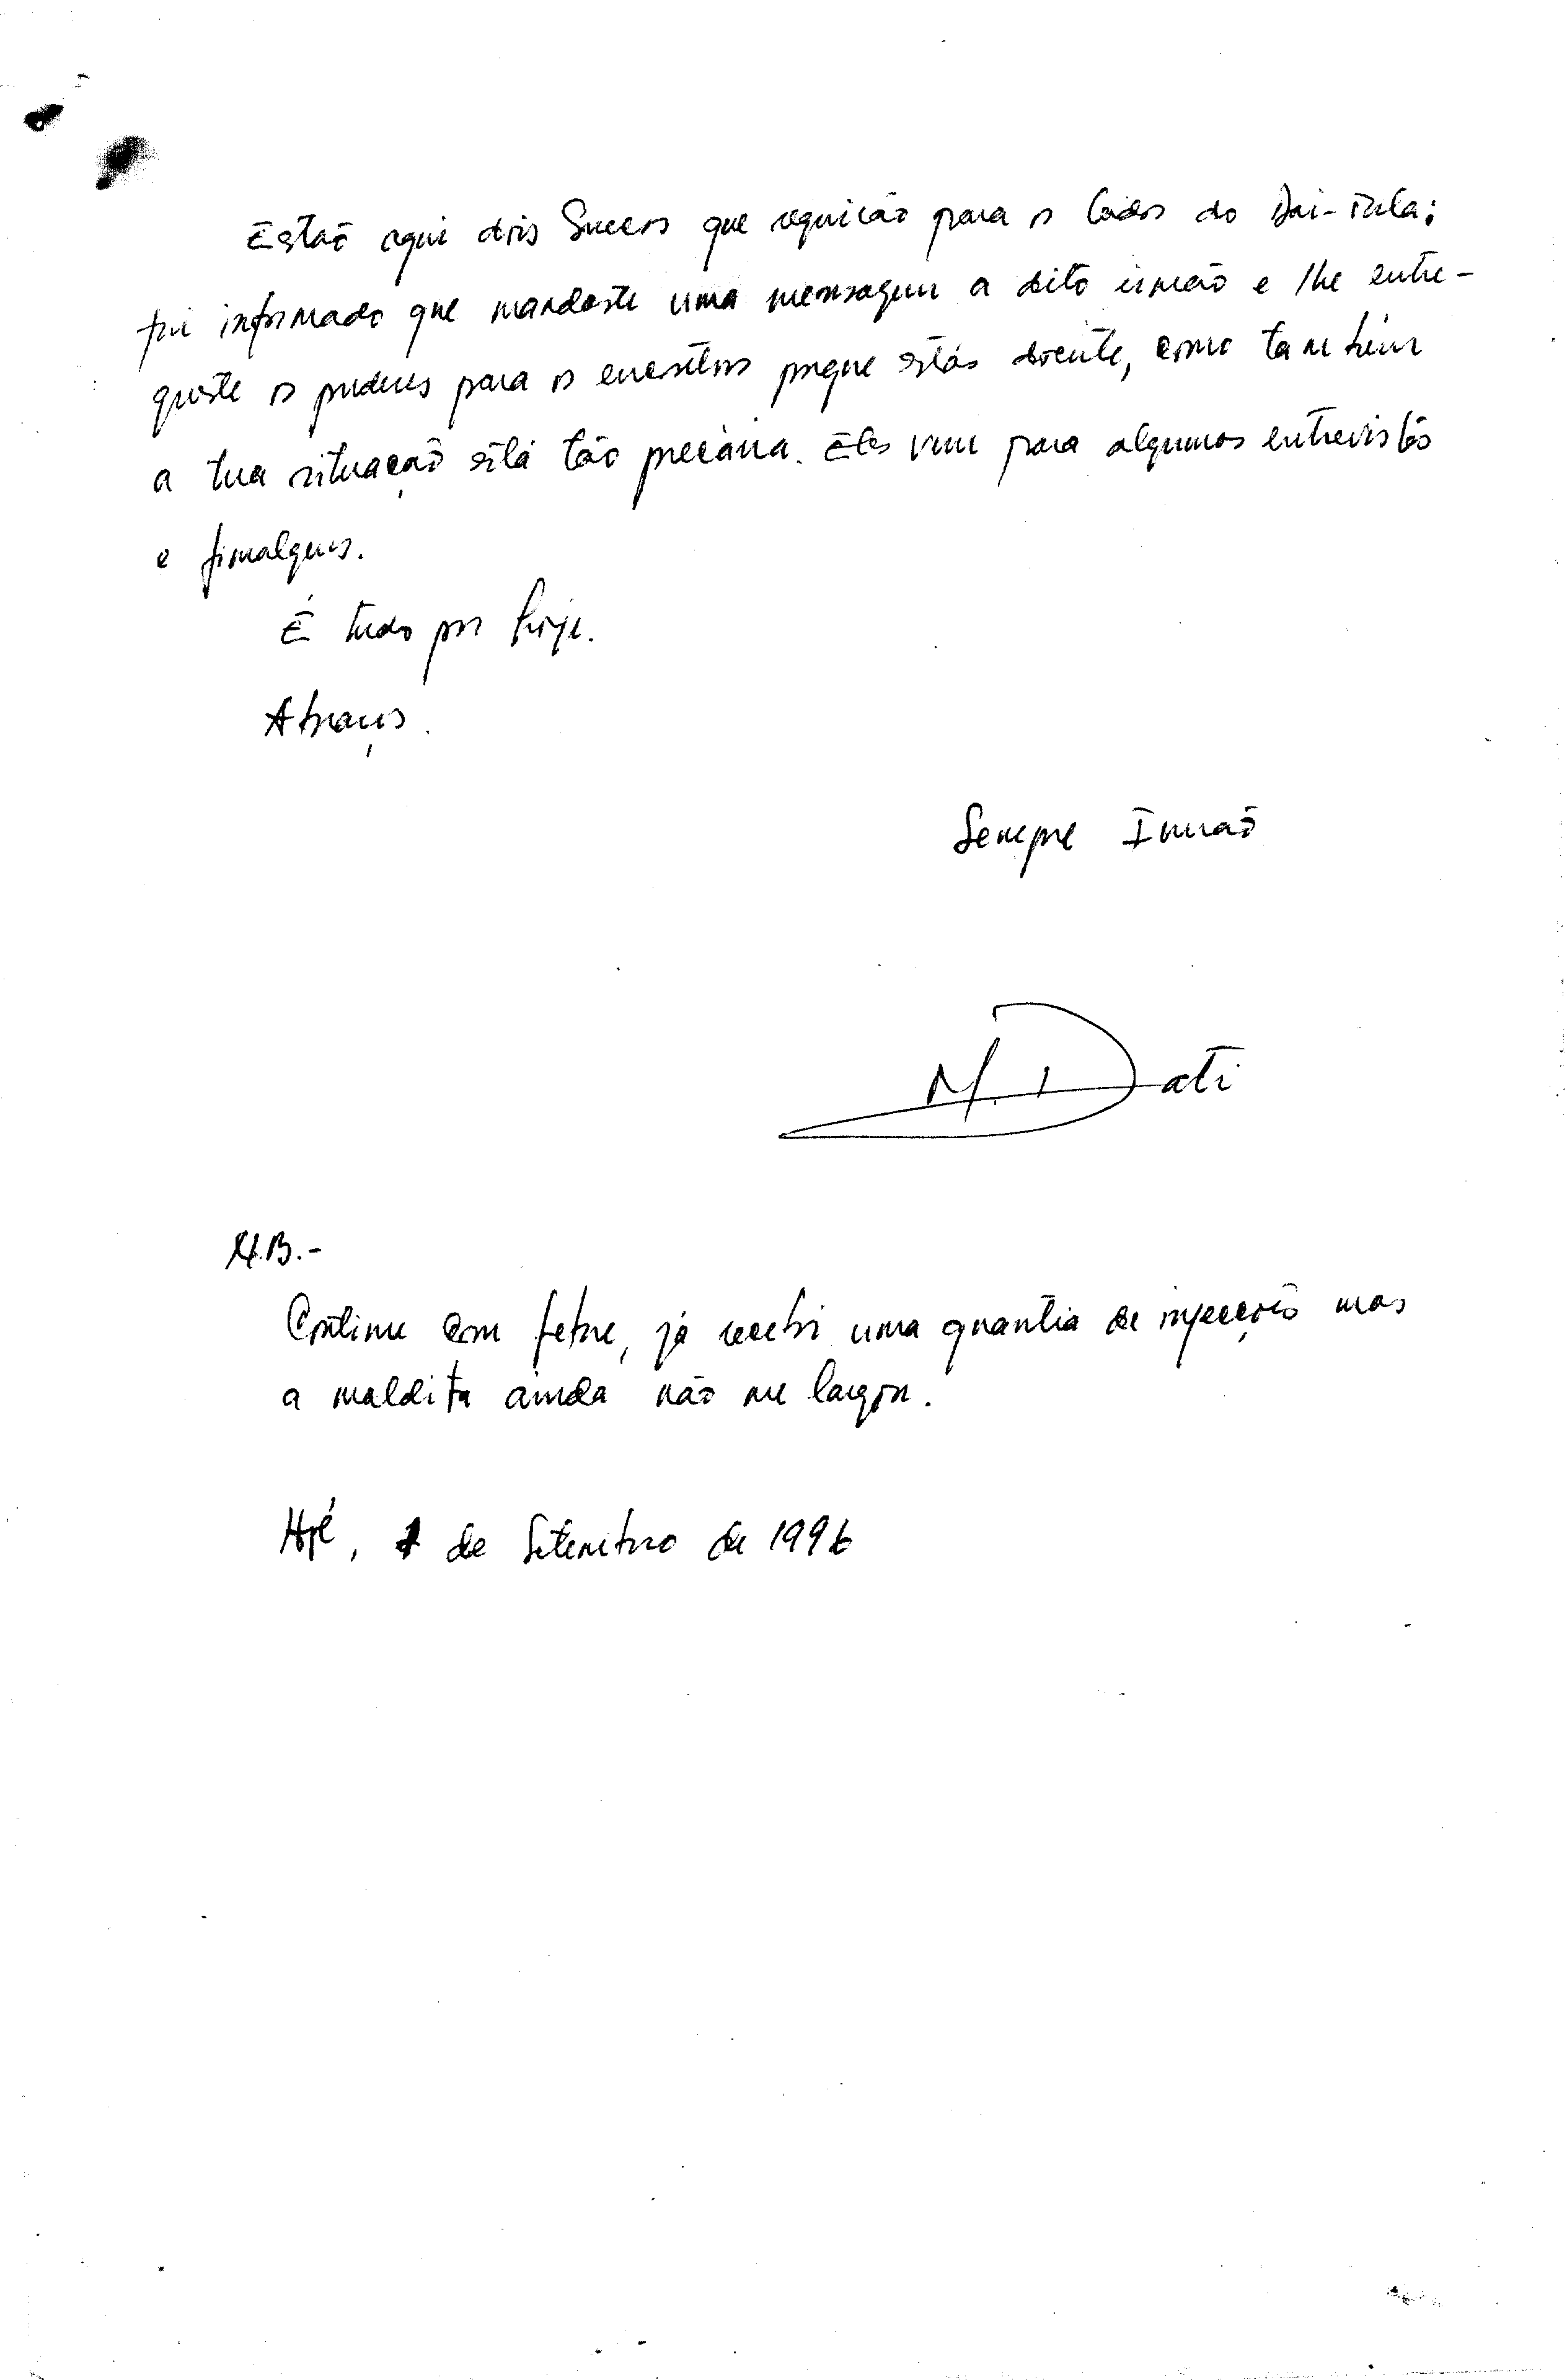 Estão aqui dois Suecos que seguirão para os lados do Dai-Tula;
fui informado que mandaste uma mensagem a dito irmão e lhe entre-
gaste os poderes para os encontros porque estás doente, como também
a tua situação está tão precária. Eles vem para algumas entrevistas
e filmagens.
É tudo por hoje.
Abraços.
Sempre Irmão
M. Dati
N.B.-
Continuo com febre, já recebi uma quantia de injecções mas
a maldita ainda não me largou.
de Setembro de 1996